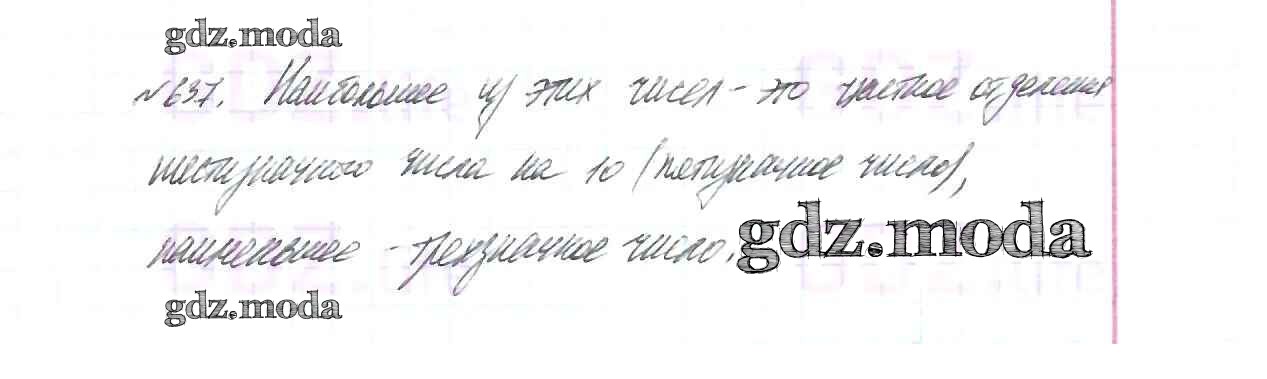 gdz.moda
№637. Наибольшее из этих чисел - это частное от деления
шестизначного числа на 10 (пятизначное число),
наименьшее - трехзначное число.
gdz.moda
gdz.moda